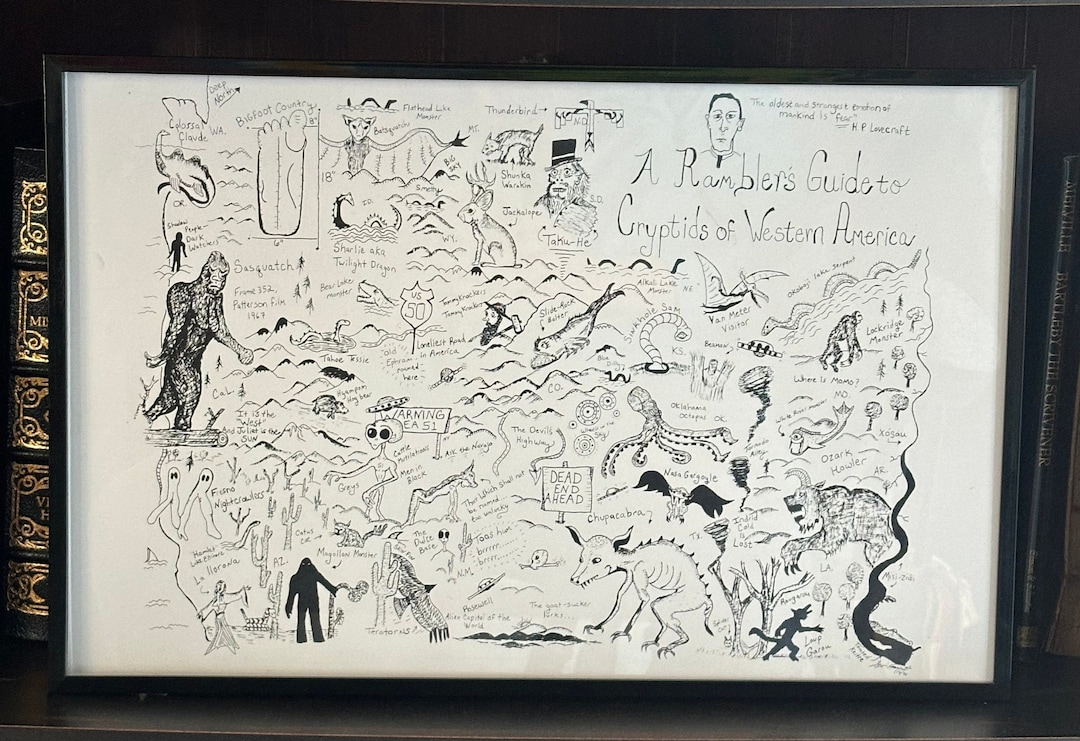 Deep
North
Bigfoot Country
8"
18"
6"
Colossal
Claude
WA.
OR.
Shadow
People-
Dark
Watchers
Flathead Lake
Monster
Batsquatch
MT.
BIG
SKY
Thunderbird
N.D.
The oldest and strongest emotion of
mankind is "fear"
H.P. Lovecraft
A Rambler's Guide to
Cryptids of Western America
Shunka
Warakin
S.D.
Jackalope
Taku-He
I.D.
WY.
Sharlie aka
Twilight Dragon
Sasquatch
Frame 352
Patterson film
1967
Bear Lake
monster
US
50
Loneliest Road
in America
Tommyknockers
Slide-Rock
Bolter
Alkali Lake
Monster
NE.
Van Meter
Visitor
Okoboji lake serpent
Lockridge
Monster
Sinkhole Sam
KS.
Where is Momo?
MO.
Tahoe Tessie
"old
Ephraim
roamed
here"
CAL.
Hyampom
Hog bear
It is the
"West"
And Juliet is the
SUN
WARNING
AREA 51
Cattle
Mutilations
Men in
Black
Greys
CO.
The Devil's
Highway
Oklahoma
Octopus
OK.
White River monster
Ozark
Howler
AR.
Fresno
Nightcrawlers
That Which Shall not
be named...
too unlucky
DEAD
END
AHEAD
Nasa Gargoyle
Chupacabra?
TX.
Indrid
Cold
is
Lost
Cactus
Cat
Mogollon Monster
AZ.
La
Llorona
The
Dulce
Base
Taos hum
brrrr...
brrrr...
N.M.
Roswell
Alien Capital of the
World
The goat-sucker
lurks...
Teratorns?
LA.
Rougarou
Loup
Garou
MELVILLE
BARTLEBY THE SCRIVENER